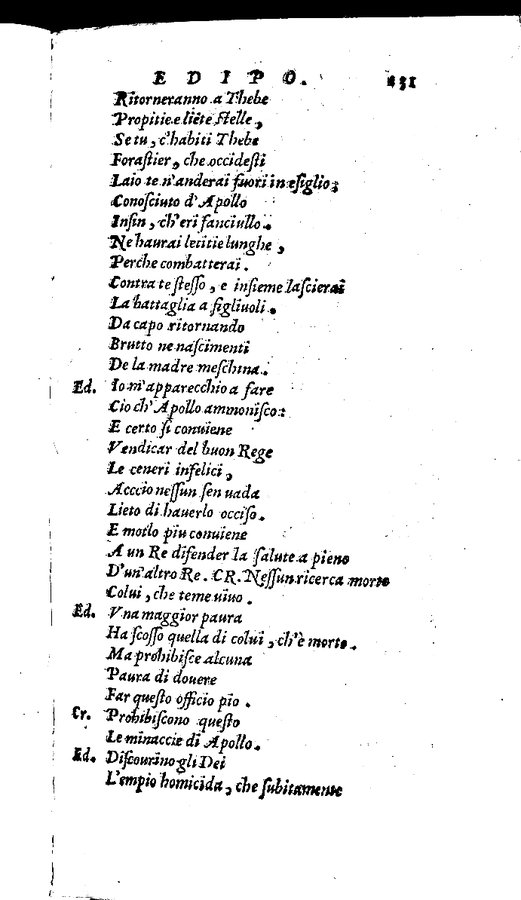 EDIPO. 231
Ritorneranno a Thebe
Propitie e liete stelle,
Se tu, c'habiti Thebe
Forastier, che occidesti
Laio te n'anderai fuori in esiglio;
Conosciuto d'Apollo
Insin, ch'eri fanciullo.
Ne haurai letitie lunghe,
Perche combatterai.
Contra te stesso, e insieme lascierai
La battaglia a figliuoli.
Da capo ritornando
Brutto ne nascimenti
De la madre meschina.
Ed. Io m'apparecchio a fare
Cio ch'Apollo ammonisco:
E certo si conuiene
Vendicar del buon Rege
Le ceneri infelici,
Acccio nessun sen uada
Lieto di hauerlo occiso.
E molto piu conuiene
A un Re difender la salute a pieno
D'un'altro Re. CR. Nessun ricerca morto
Colui, che teme uiuo.
Ed. Vna maggior paura
Ha scosso quella di colui, ch'è morto.
Ma prohibisce alcuna
Paura di douere
Far questo officio pio.
Cr. Prohibiscono questo
Le minaccie di Apollo.
Ed. Discourino gli Dei
L'empio homicida, che subitamente